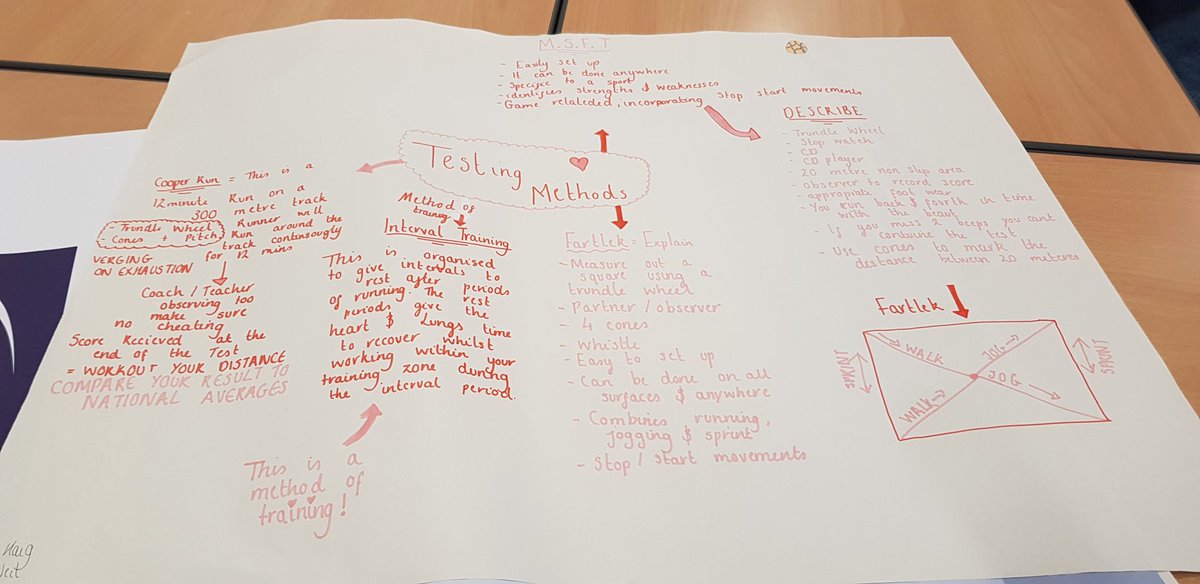 M.S.F.T
- Easily set up
- It can be done anywhere
- Specific to a sport
- identifies strengths & weaknesses
- Game relateded, incorporating stop start movements
DESCRIBE
- Trundle Wheel
- Stop watch
- CD
- CD player
- 20 metre non slip area
- observer to record score
- appropiate foot wear
- You run back & fourth in time
with the beat
- If you miss 2 beeps you cant
continue the test
- Use cones to mark the
distance between 20 meteres
Testing
Methods
Cooper Run = This is a
12 minute Run on a
300 metre track
- Trundle Wheel
- Cones + Pitch
Runner will
Run around the
track continuously
for 12 mins
VERGING
ON EXHAUSTION
Coach / Teacher
observing too
make sure
no cheating
Score Recieved at the
end of the Test
= WORKOUT YOUR DISTANCE
COMPARE YOUR RESULT TO
NATIONAL AVERAGES
Method of
training
Interval Training
This is organised
to give intervals to
rest after periods
of running. The rest
periods give the
heart & Lungs time
to recover whilst
working within your
training zone during
the interval period.
This is a
method of
training!
Fartlek = Explain
- Measure out a
square using a
trundle wheel
- Partner / observer
- 4 cones
- Whistle
- Easy to set up
- Can be done on all
surfaces & anywhere
- Combines running,
jogging & sprint
- Stop / Start movements
Fartlek
WALK
JOG
SPRINT
SPRINT
JOG
WALK
Haig